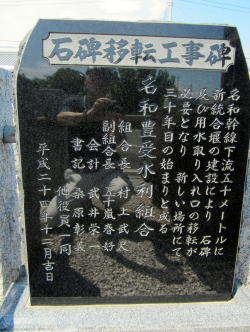 石碑移転工事碑
名和幹線下流五十メートルに
新統合堰の建設により 石碑
及び用水取り入れ口の移転が
必要となり 新しい場所にて
三十年目の始まりと成る
名和豊受水利組合
組合長 村上武史
副組合長 五十嵐春好
会計 武井栄一
書記 桑原彰義
他役員一同
平成二十四年十二月吉日